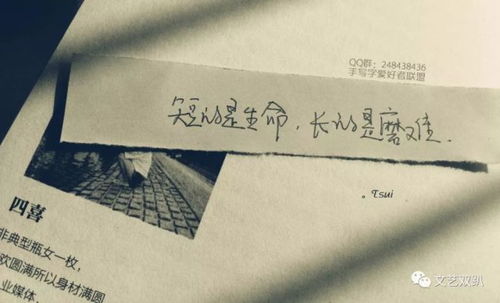 QQ群：248438436
手写字爱好者联盟
短的是生命，长的是磨难．
。Tsui
四喜
非典型瓶女一枚，
欢圆满所以身材满圆
业媒体，
文艺双趴